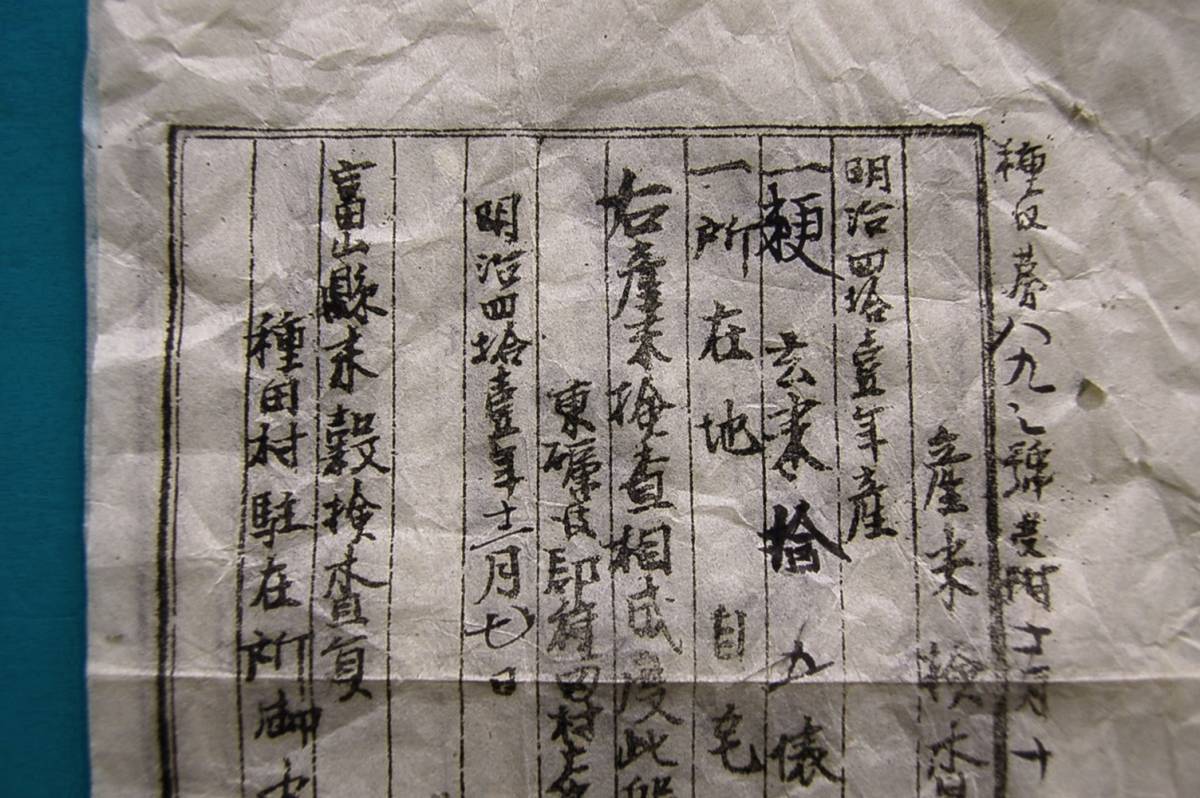 種收第八九之號受附十二月十
産米檢査
明治四拾壹年産
一粳玄米拾九俵
一所在地自宅
右産米檢査相成度此段
東礪波郡種田村
明治四拾壹年十二月七日
富山縣米穀檢査員
種田村駐在所御中